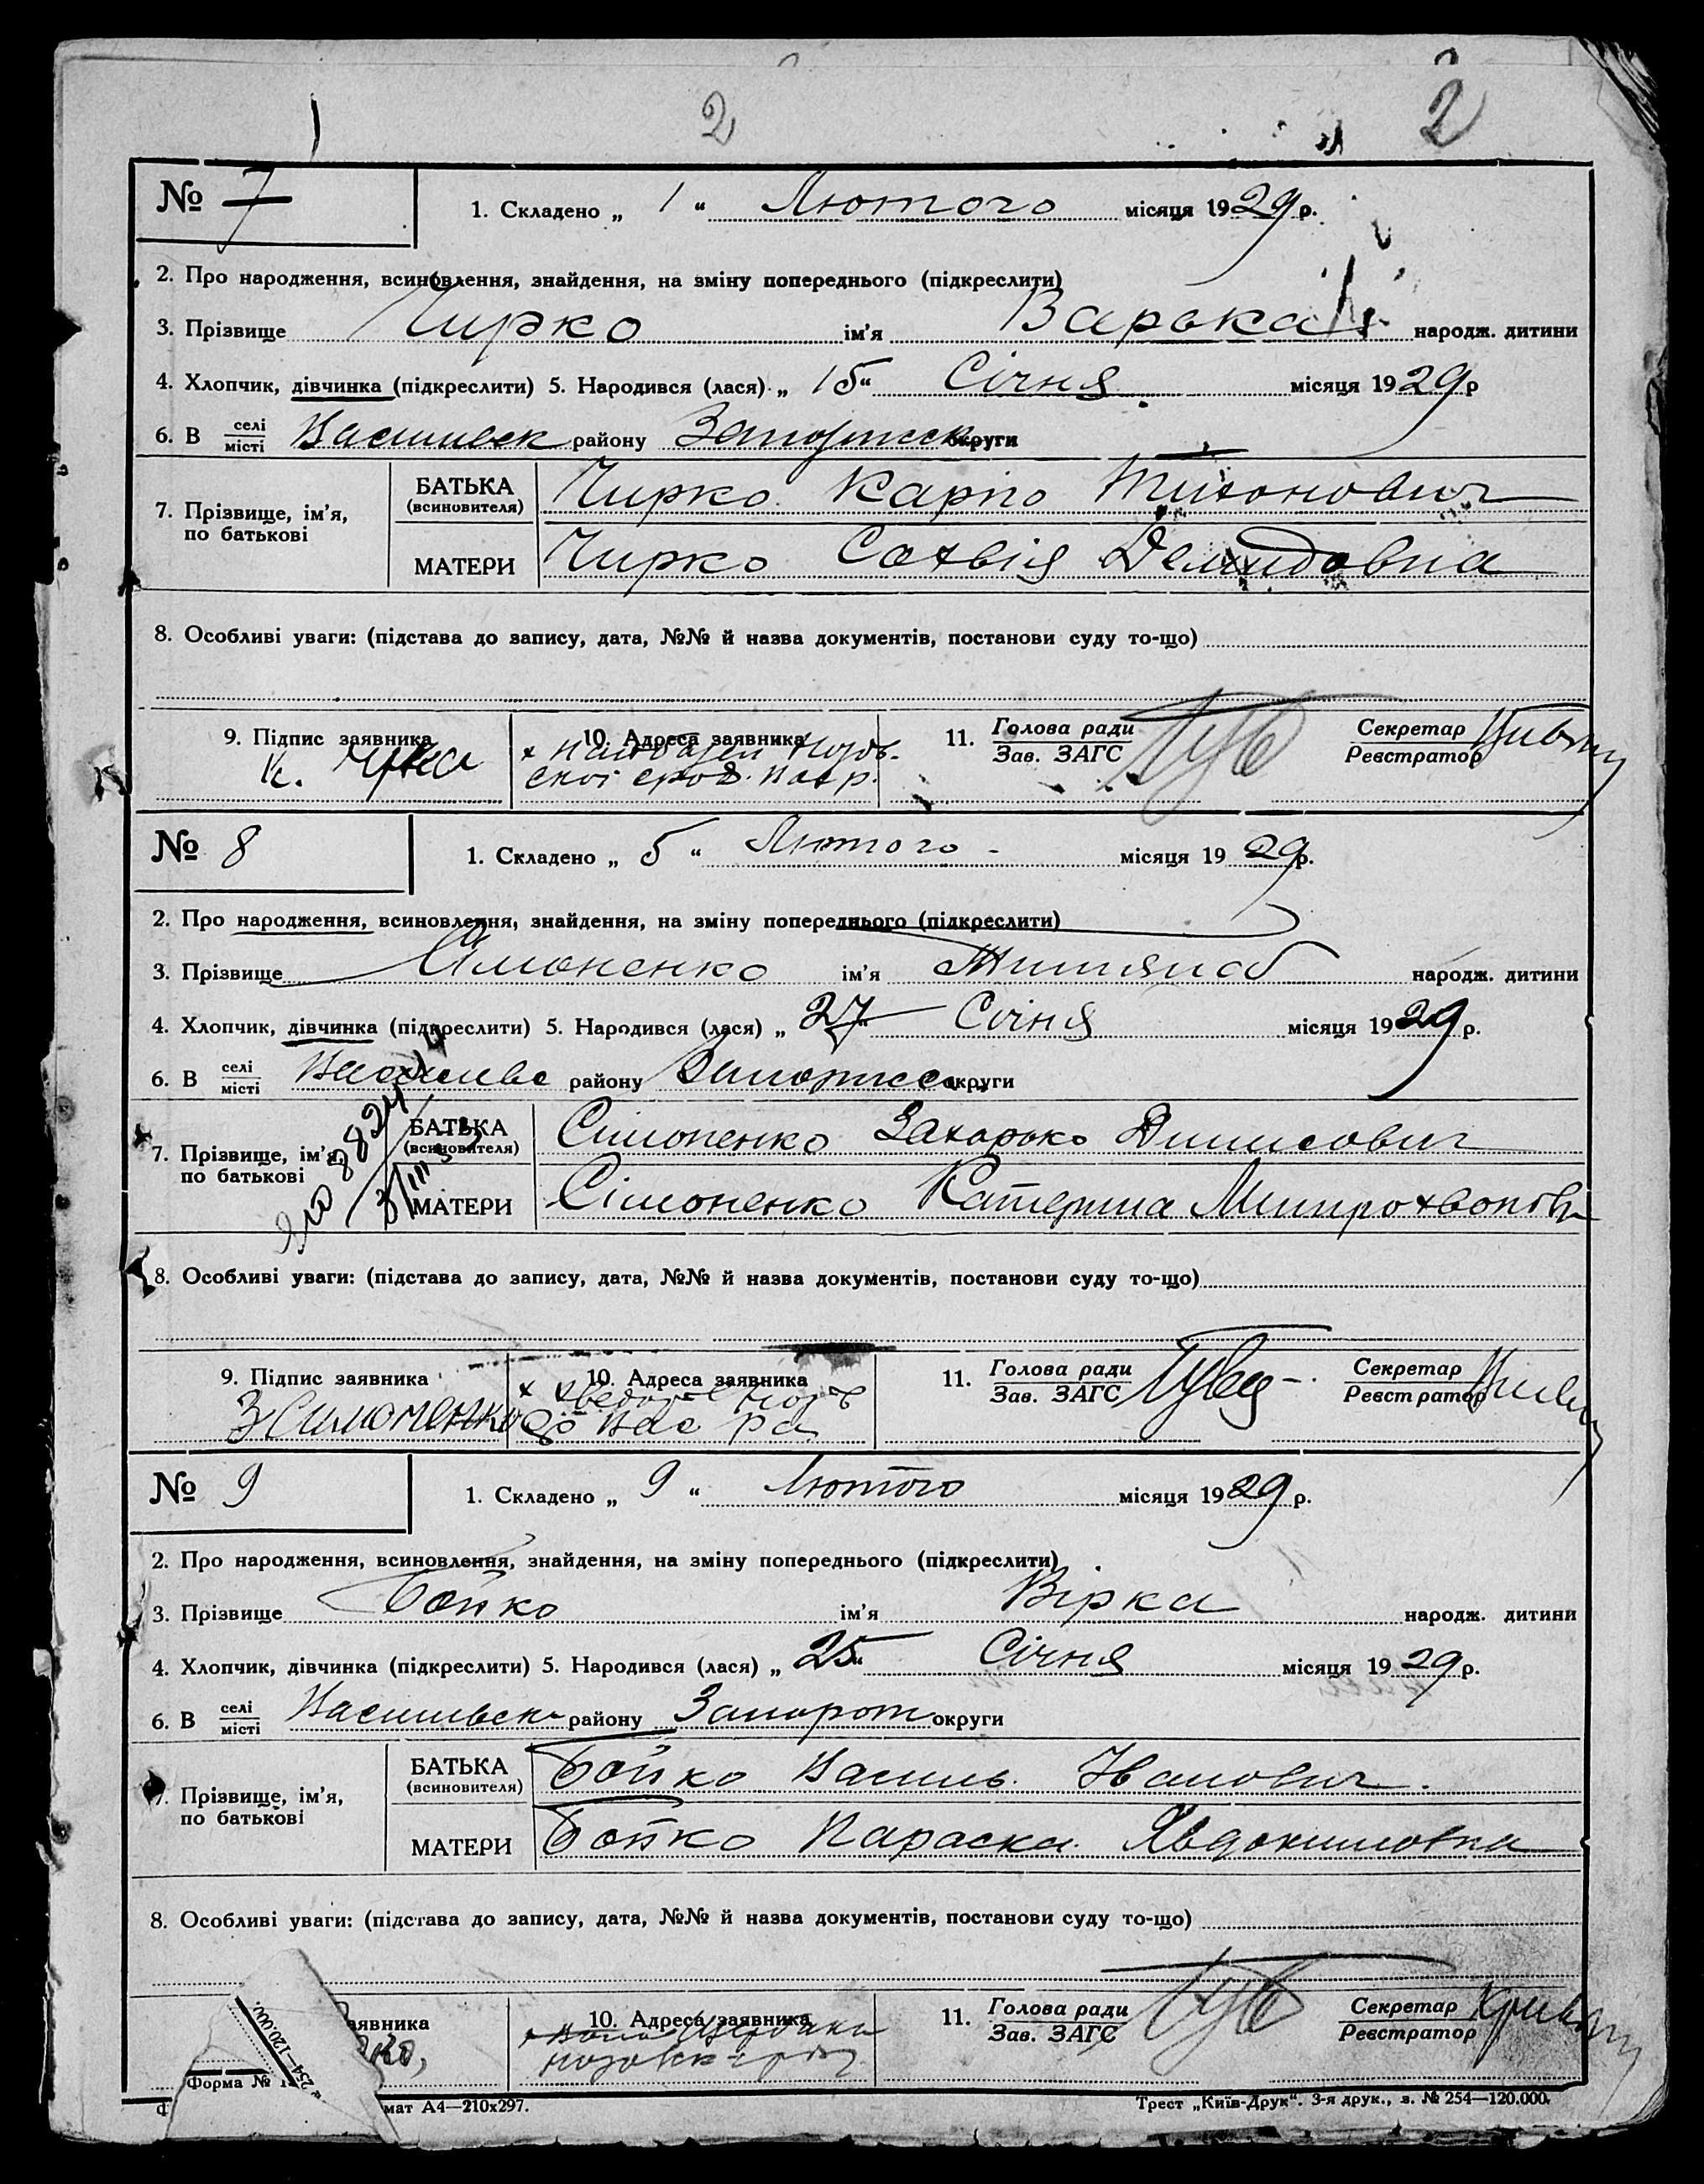 2 2
№ 7 1. Складено „ 1 “ Лютого місяця 1929 р.
2. Про народження, всиновлення, знайдення, на зміну попереднього (підкреслити)
3. Прізвище Чирко ім’я Варька народж. дитини
4. Хлопчик, дівчинка (підкреслити) 5. Народився (лася) „ 15 “ Січня місяця 1929 р
6. В селі місті Василівск району Запоріжск округи
7. Прізвище, ім’я, по батькові БАТЬКА (всиновителя) Чирко Карпо Тихонович
МАТЕРИ Чирко Сохвія Демидовна
8. Особливі уваги: (підстава до запису, дата, №№ й назва документів, постанови суду то-що)
9. Підпис заявника 10. Адреса заявника 11. Голова ради Зав. ЗАГС Секретар Реєстратор
К.
№ 8 1. Складено „ 5 “ Лютого місяця 19 29 р.
2. Про народження, всиновлення, знайдення, на зміну попереднього (підкреслити)
3. Прізвище Сімоненко ім’я Титяна народж. дитини
4. Хлопчик, дівчинка (підкреслити) 5. Народився (лася) „ 27 “ Січня місяця 1929 р.
6. В селі місті Василівс району Запоріжс округи
7. Прізвище, ім’я, по батькові БАТЬКА (всиновителя) Сімоненко Захарько Динисович
МАТЕРИ Сімоненко Катерина Митрохвонів
8. Особливі уваги: (підстава до запису, дата, №№ й назва документів, постанови суду то-що)
9. Підпис заявника 10. Адреса заявника 11. Голова ради Зав. ЗАГС Секретар Реєстратор
З Симоненко
№ 9 1. Складено „ 9 “ Лютого місяця 1929 р.
2. Про народження, всиновлення, знайдення, на зміну попереднього (підкреслити)
3. Прізвище Бойко ім’я Вірка народж. дитини
4. Хлопчик, дівчинка (підкреслити) 5. Народився (лася) „ 25 “ Січня місяця 19 29 р.
6. В селі місті Василівск району Запорож округи
Прізвище, ім’я, по батькові БАТЬКА (всиновителя) Бойко Василь Іванович
МАТЕРИ Бойко Параска Явдокимовна
8. Особливі уваги: (підстава до запису, дата, №№ й назва документів, постанови суду то-що)
аявника 10. Адреса заявника 11. Голова ради Зав. ЗАГС Секретар Реєстратор
254—120.000.
Форма №
мат А4—210х297. Трест „Київ-Друк“. 3-я друк., з. № 254—120.000.